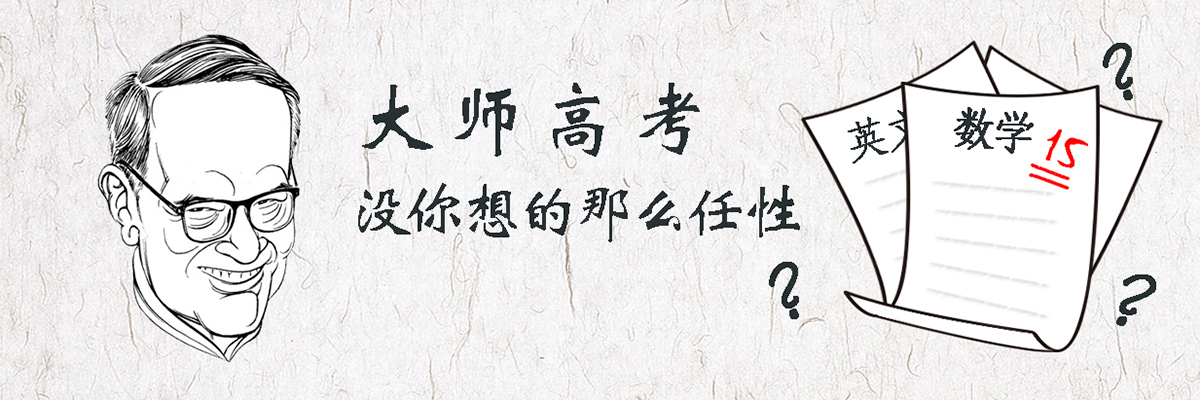 大师高考
没你想的那么任性
英文
数学
15
?
?
?